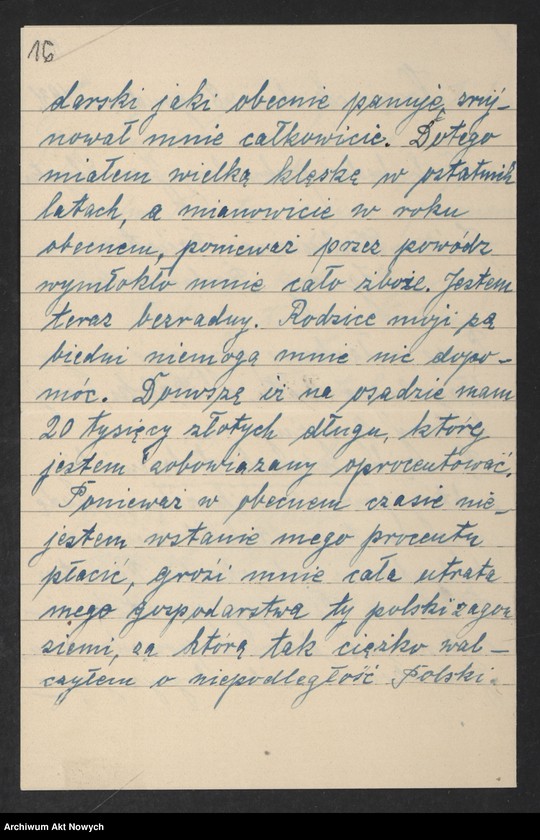 16
darski jaki obecnie panuję zruj-
nował mnie całkowicie. Dotego
miałem wielką klęskę w ostatnich
latach, a mianowicie w roku
obecnem, ponieważ przez powódz
wymłokło mnie cało zboże. Jestem
teraz bezradny. Rodzice moji są
biedni niemogą mnie nic dopo-
móc. Donoszę iż na osadzie mam
20 tysięcy złotych długu, którę
jestem zobowiązany oprocentować.
Ponieważ w obecnem czasie nie-
jestem wstanie mego procentu
płacić, grozi mnie cała utrata
mego gospodarstwa ty polski
ziemi, za którą tak ciężko wal-
czyłem o niepodległość Polski.
Archiwum Akt Nowych